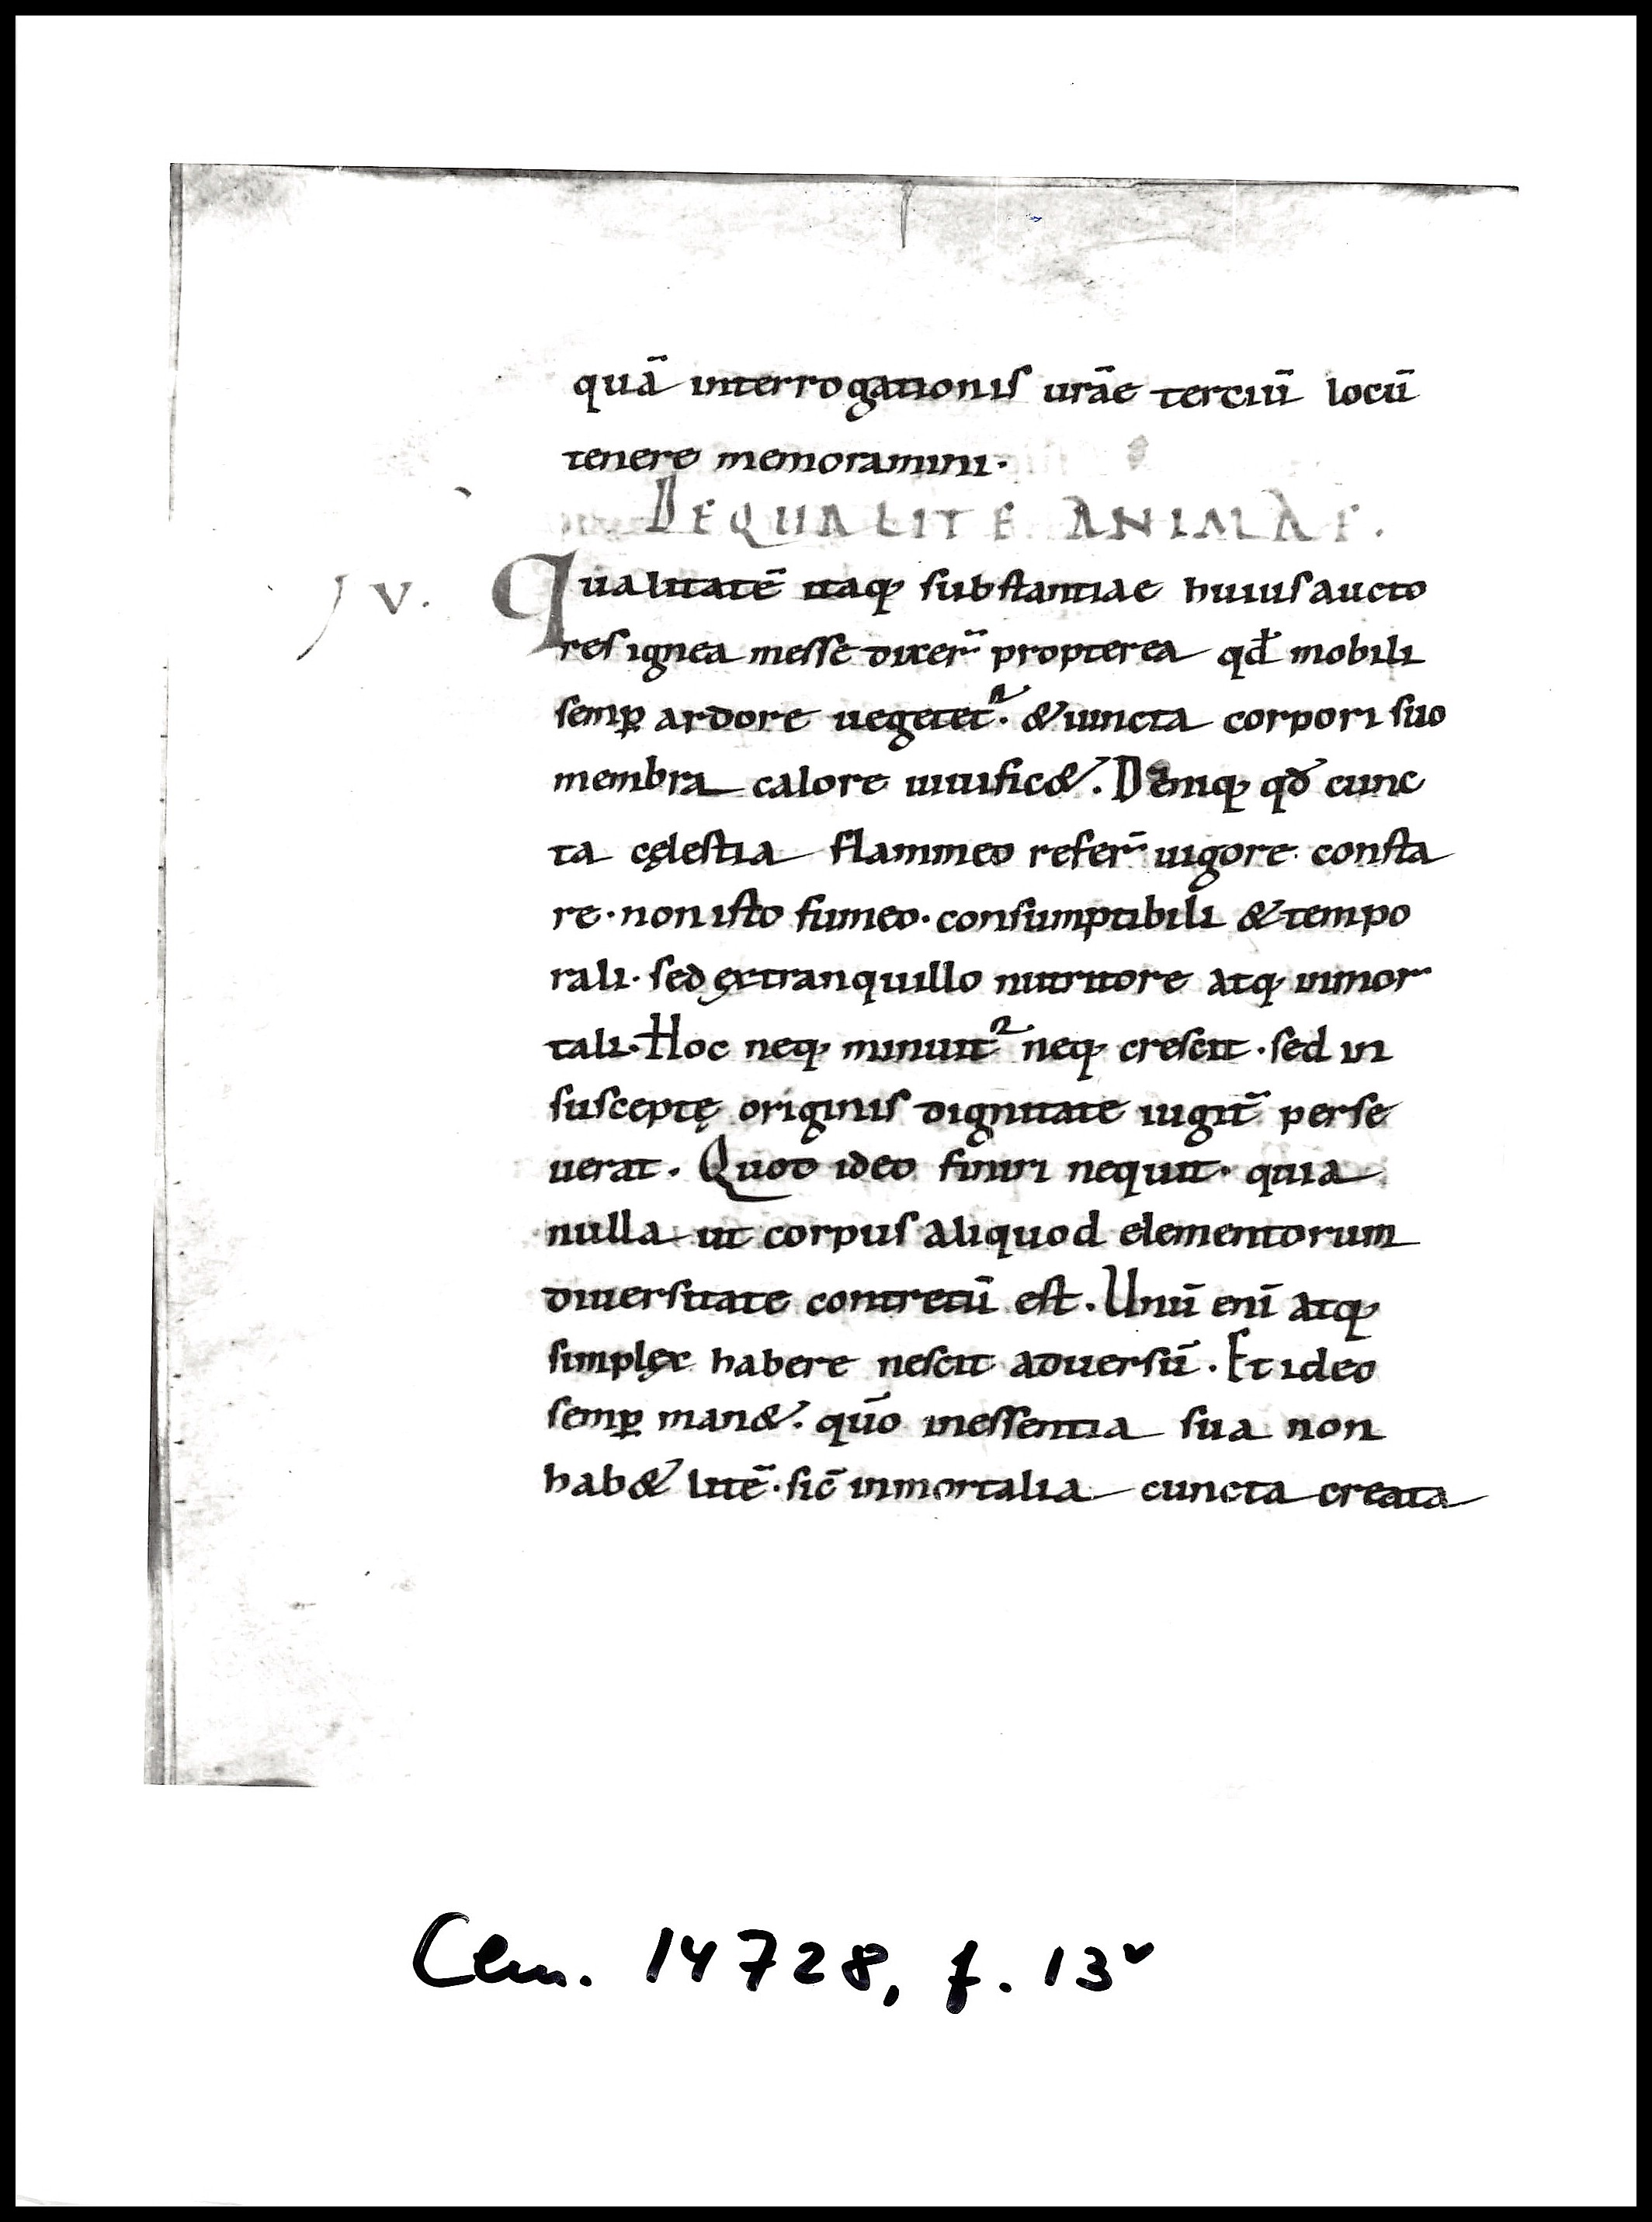 quā interrogationis urāe terciū locū
tenere memoramini·
DE QUALITE ANIMAE.
IV. Qualitatē itaq; substantiae huius aucto
res ignea messe dixer̄ propterea qđ mobili
semꝑ ardore uegetet᷑· & iuncta corpori suo
membra calore uiuific&. Deniq; qđ cunc
ta cęlestia flammeo refer̄ uigore consta
re· non isto fumeo· consumptibili & tempo
rali· sed ęx tranquillo nutritore atq; inmor
tali· Hoc neq; minuit᷑ neq; crescit· sed in
susceptę originis dignitate iugit̄ perse
uerat. Quod ideo finiri nequit· quia
nulla ut corpus aliquod elementorum
diuersitate contretū est. Unū enī atq;
simplęx habere nescit aduersū. Et ideo
semꝑ man&. quō inessentia sua non
hab& litē· sic̄ inmortalia cuncta creata
Clm. 14728, f. 13v